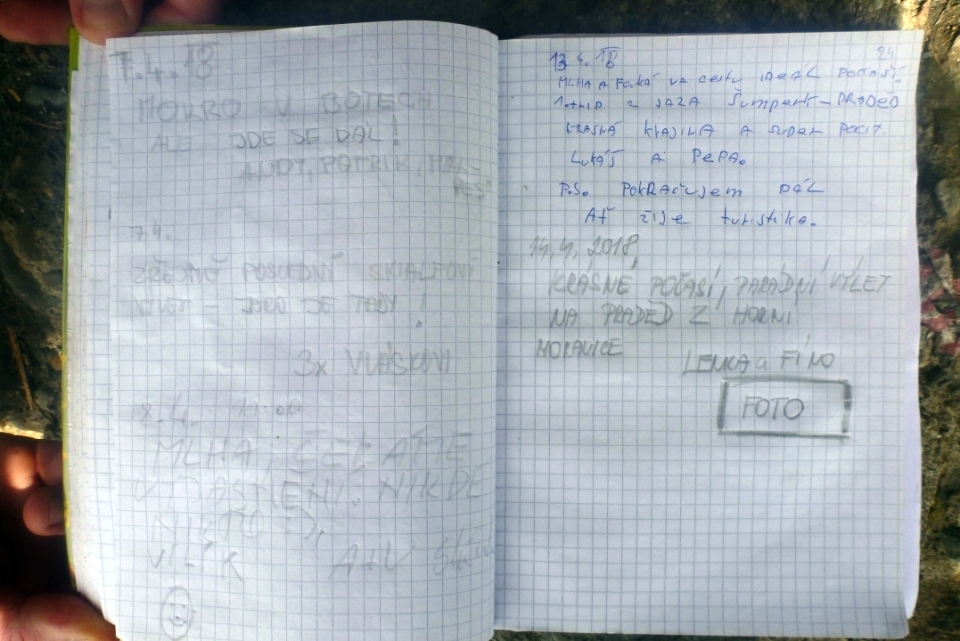 7.4. 18
MOKRO V BOTECH
ALE JDE SE DÁL!
ANDY PATRIK,
PES
7.4.
ZŘEJMĚ POSLEDNÍ SKIALPOVÝ
VÝLET - JARO JE TADY!
3x VLÁSKOVI
8.4. 11:00
MLHA, ČEKÁME
VYJASNĚNÍ. NIKDE
NIKDO :),
VILÍK
24
13. 4. 18
MLHA A FOUKÁ NA CESTU IDEÁL POČASÍ.
1. TRIP Z Šumperk - PRADĚD
KRÁSNÁ KRAJINA A SUPER POCIT.
Lukáš A PEPA.
P.S. POKRAČUJEM DÁL
AŤ ŽIJE turistika.
14.4. 2018,
KRÁSNÉ POČASÍ, PARÁDNÍ VÝLET
NA PRADĚD Z HORNÍ
MORAVICE
LENKA a FÍNO
FOTO